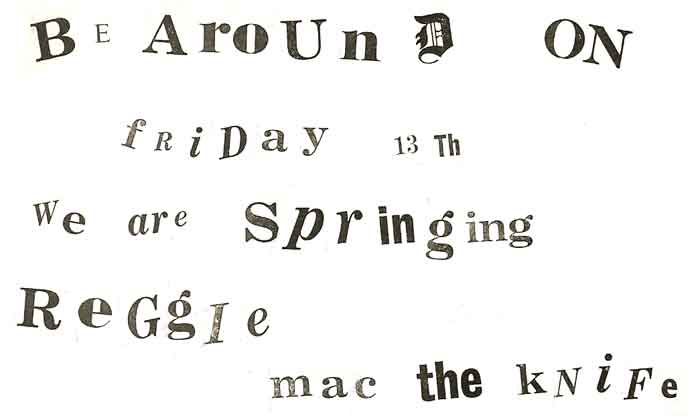 BE ArOUnD ON
fRiDay 13Th
We are Springing
ReGgIe
mac the kNiFe